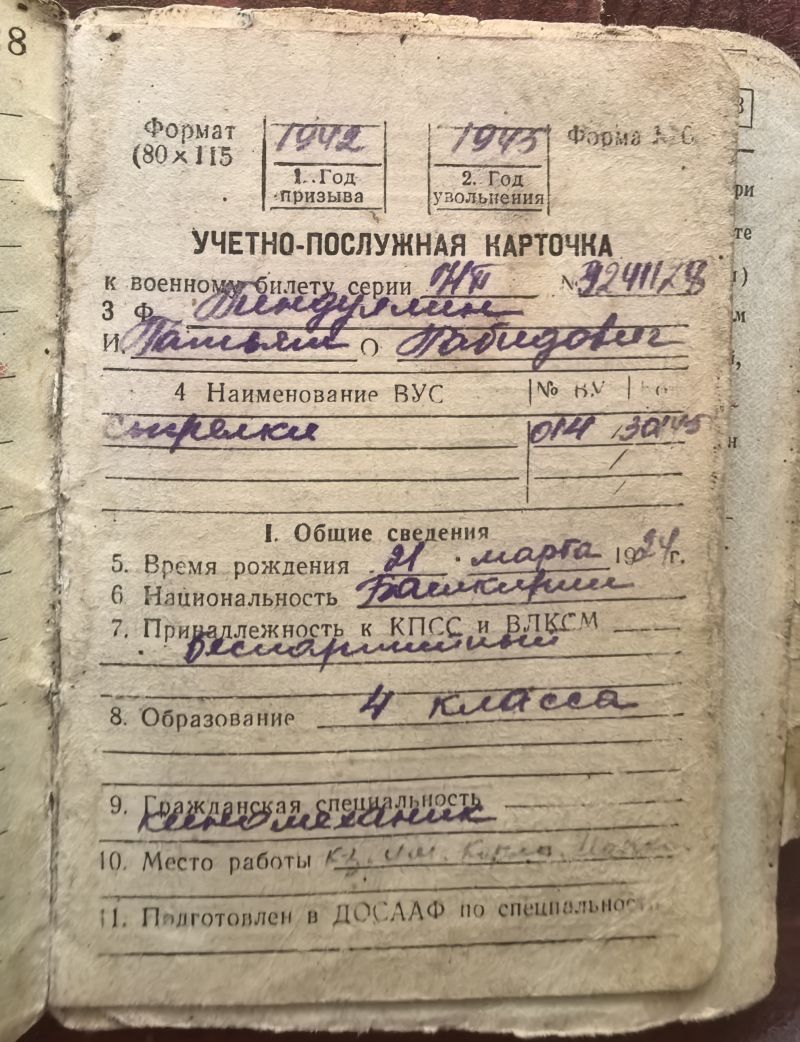 8
Формат 1942 1945 Форма №
(80×115 1. Год призыва 2. Год увольнения
УЧЕТНО-ПОСЛУЖНАЯ КАРТОЧКА
к военному билету серии НП № 9241128
3 Ф
И О Габидович
4 Наименование ВУС № ВУ
стрелки 014
I. Общие сведения
5. Время рождения 21 марта 1924г.
6 Национальность
7. Принадлежность к КПСС и ВЛКСМ
беспартийный
8. Образование 4 класса
9. Гражданская специальность
киномеханик
10. Место работы к-з. им. Карла
11. Подготовлен в ДОСААФ по специальност
ри
те
)
м
й,
н